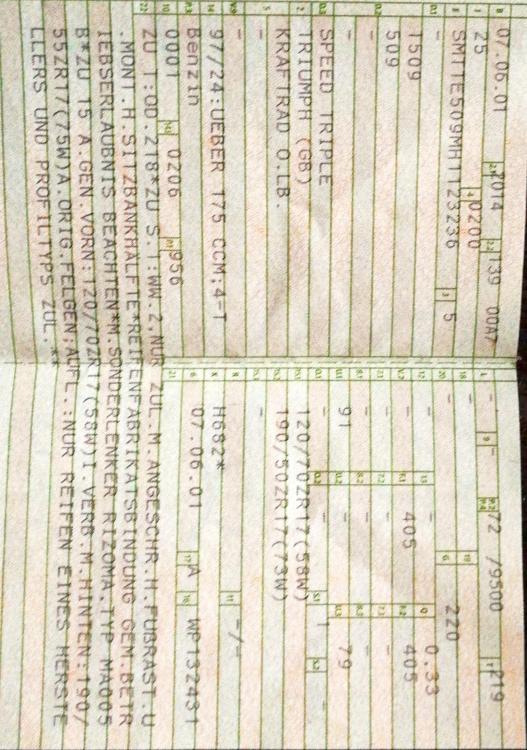 07.06.01 2014 139 00A7
25 0200
SMTTE509MH1123236 5
-
1509
509
SPEED TRIPLE
TRIUMPH (GB)
KRAFTRAD O.LB.
-
-
97/24:UEBER 175 CCM;4-T
Benzin
0001 0206 956
- - 72 /9500 219
- -
- 220
- - 0.33
- 405 405
- - -
- - -
91 - 79
120/70ZR17(58W) 1 -
190/50ZR17(73W)
-
H682* -/-
07.06.01 A WP132431
ZU T:OD.218*ZU S.1:WW.2,NUR ZUL.M.ANGESCHR.H.FUßRAST.U
.MONT.H.SITZBANKHÄLFTE*REIFENFABRIKATSBINDUNG GEM.BETR
IEBSERLAUBNIS BEACHTEN*M.SONDERLENKER RIZOMA,TYP MA005
B*ZU 15 A.GEN.VORN:120/70ZR17(58W)I.VERB.M.HINTEN:190/
55ZR17(75W)A.ORIG.FELGEN;AUFL.:NUR REIFEN EINES HERSTE
LLERS UND PROFILTYPS ZUL.**